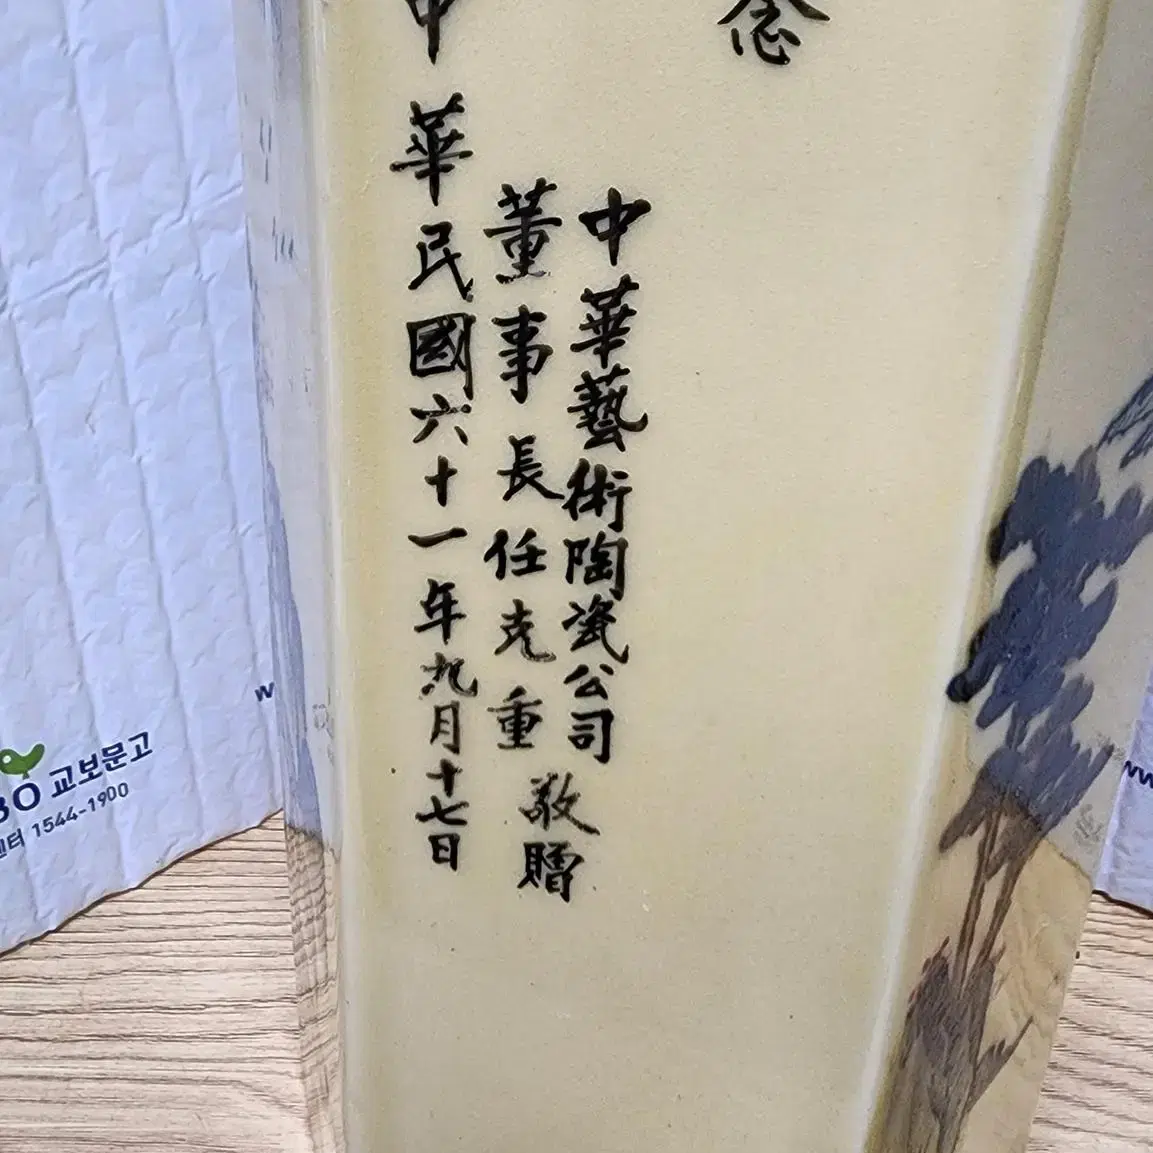 念
中華藝術陶瓷公司
董事長任克重
敬贈
中華民國六十一年九月十七日
BO 교보문고
센터 1544-1900
w
ww